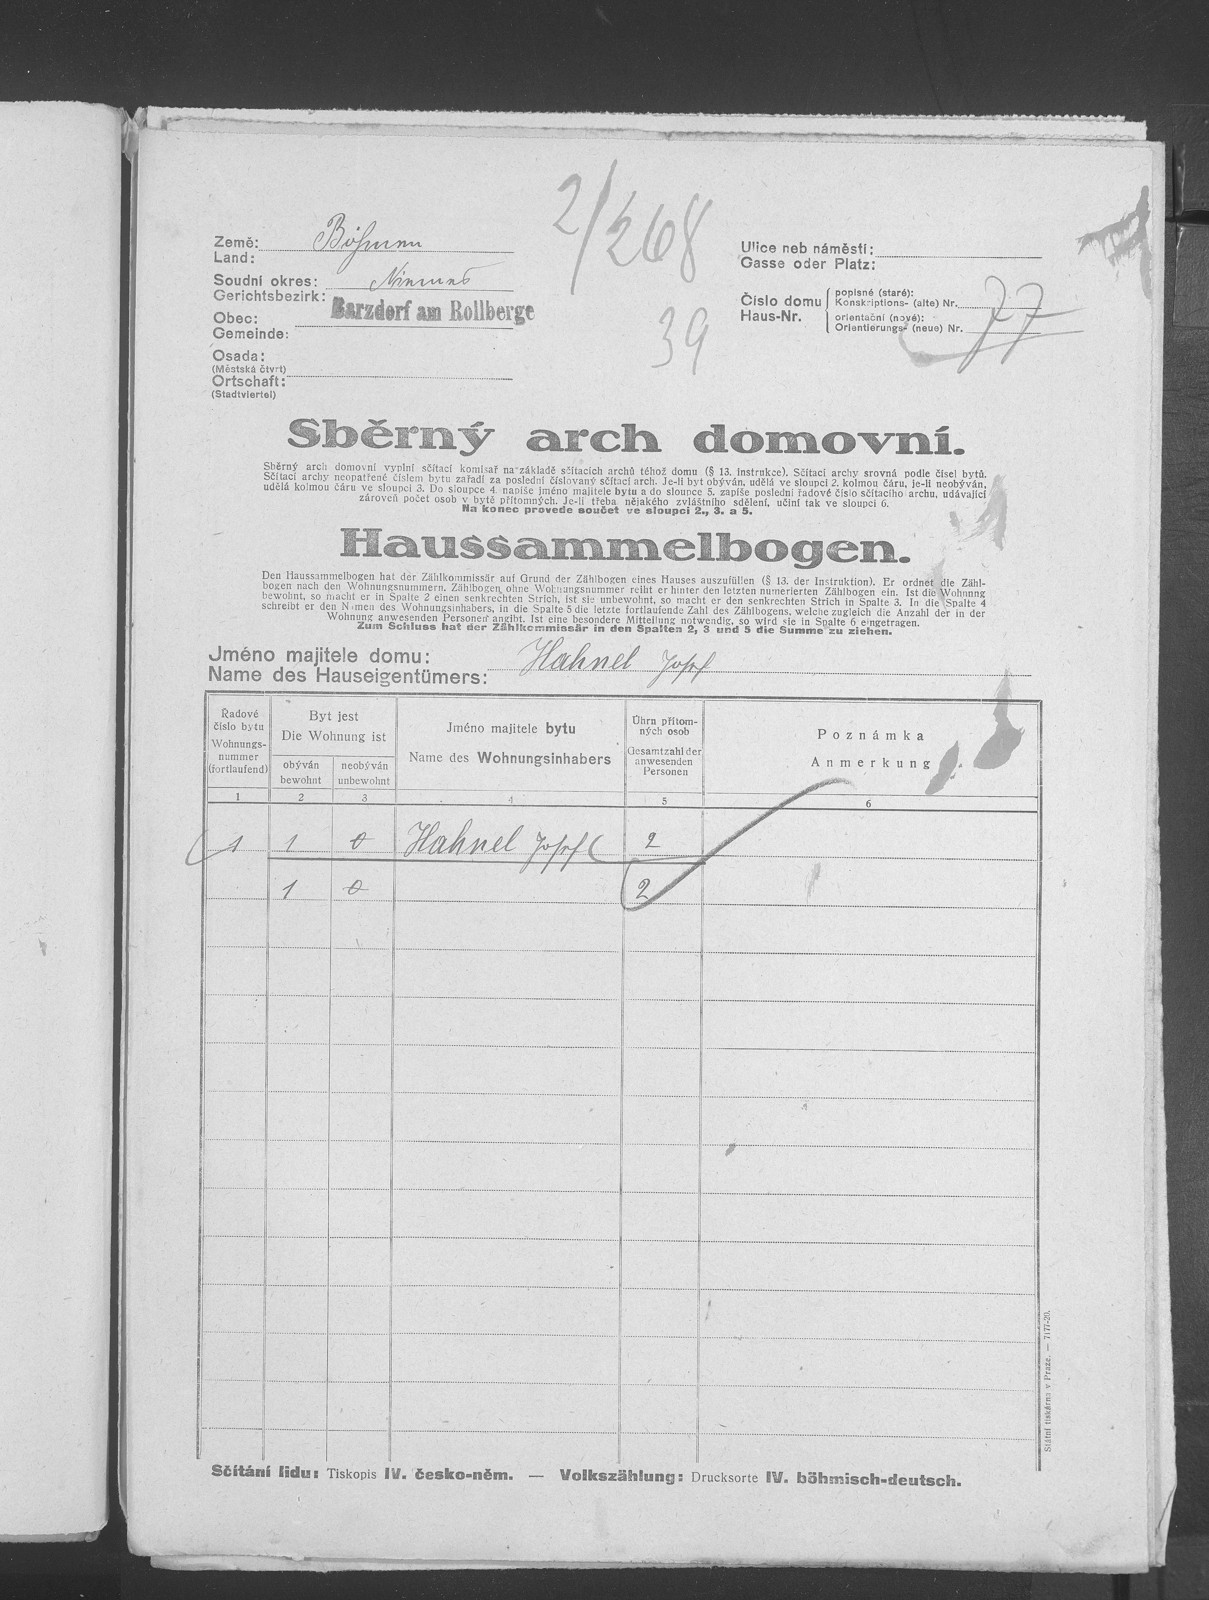 2/268
39
Země: Böhmen
Land:
Soudní okres: Niemes
Gerichtsbezirk:
Obec: Barzdorf am Rollberge
Gemeinde:
Osada:
(Městská čtvrt)
Ortschaft:
(Stadtviertel)
Ulice neb náměstí:
Gasse oder Platz:
Číslo domu
Haus-Nr.
popisné (staré):
Konskriptions- (alte) Nr.
orientační (nové):
Orientierungs- (neue) Nr.
77
Sběrný arch domovní.
Sběrný arch domovní vyplní sčítací komisař na základě sčítacích archů téhož domu (§ 13. instrukce). Sčítací archy srovná podle čísel bytů.
Sčítací archy neopatřené číslem bytu zařadí za poslední číslovaný sčítací arch. Je-li byt obýván, udělá ve sloupci 2. kolmou čáru, je-li neobýván,
udělá kolmou čáru ve sloupci 3. Do sloupce 4. napíše jméno majitele bytu a do sloupce 5. zapíše poslední řadové číslo sčítacího archu, udávající
zároveň počet osob v bytě přítomných. Je-li třeba nějakého zvláštního sdělení, učiní tak ve sloupci 6.
Na konec provede součet ve sloupci 2., 3. a 5.
Haussammelbogen.
Den Haussammelbogen hat der Zählkommissär auf Grund der Zählbogen eines Hauses auszufüllen (§ 13. der Instruktion). Er ordnet die Zähl-
bogen nach den Wohnungsnummern. Zählbogen ohne Wohnungsnummer reiht er hinter den letzten numerierten Zählbogen ein. Ist die Wohnung
bewohnt, so macht er in Spalte 2 einen senkrechten Strich, ist sie unbewohnt, so macht er den senkrechten Strich in Spalte 3. In die Spalte 4
schreibt er den Namen des Wohnungsinhabers, in die Spalte 5 die letzte fortlaufende Zahl des Zählbogens, welche zugleich die Anzahl der in der
Wohnung anwesenden Personen angibt. Ist eine besondere Mitteilung notwendig, so wird sie in Spalte 6 eingetragen.
Zum Schluss hat der Zählkommissär in den Spalten 2, 3 und 5 die Summe zu ziehen.
Jméno majitele domu: Hahnel Josef
Name des Hauseigentümers:
Řadové
číslo bytu
Wohnungs-
nummer
(fortlaufend)
Byt jest
Die Wohnung ist
obýván
bewohnt
neobýván
unbewohnt
Jméno majitele bytu
Name des Wohnungsinhabers
Úhrn přítom-
ných osob
Gesamtzahl der
anwesenden
Personen
Poznámka
Anmerkung
1 2 3 4 5 6
1 1 0 Hahnel Josef 2
1 0 2
Státní tiskárna v Praze. — 7177-20.
Sčítání lidu: Tiskopis IV. česko-něm. — Volkszählung: Drucksorte IV. böhmisch-deutsch.